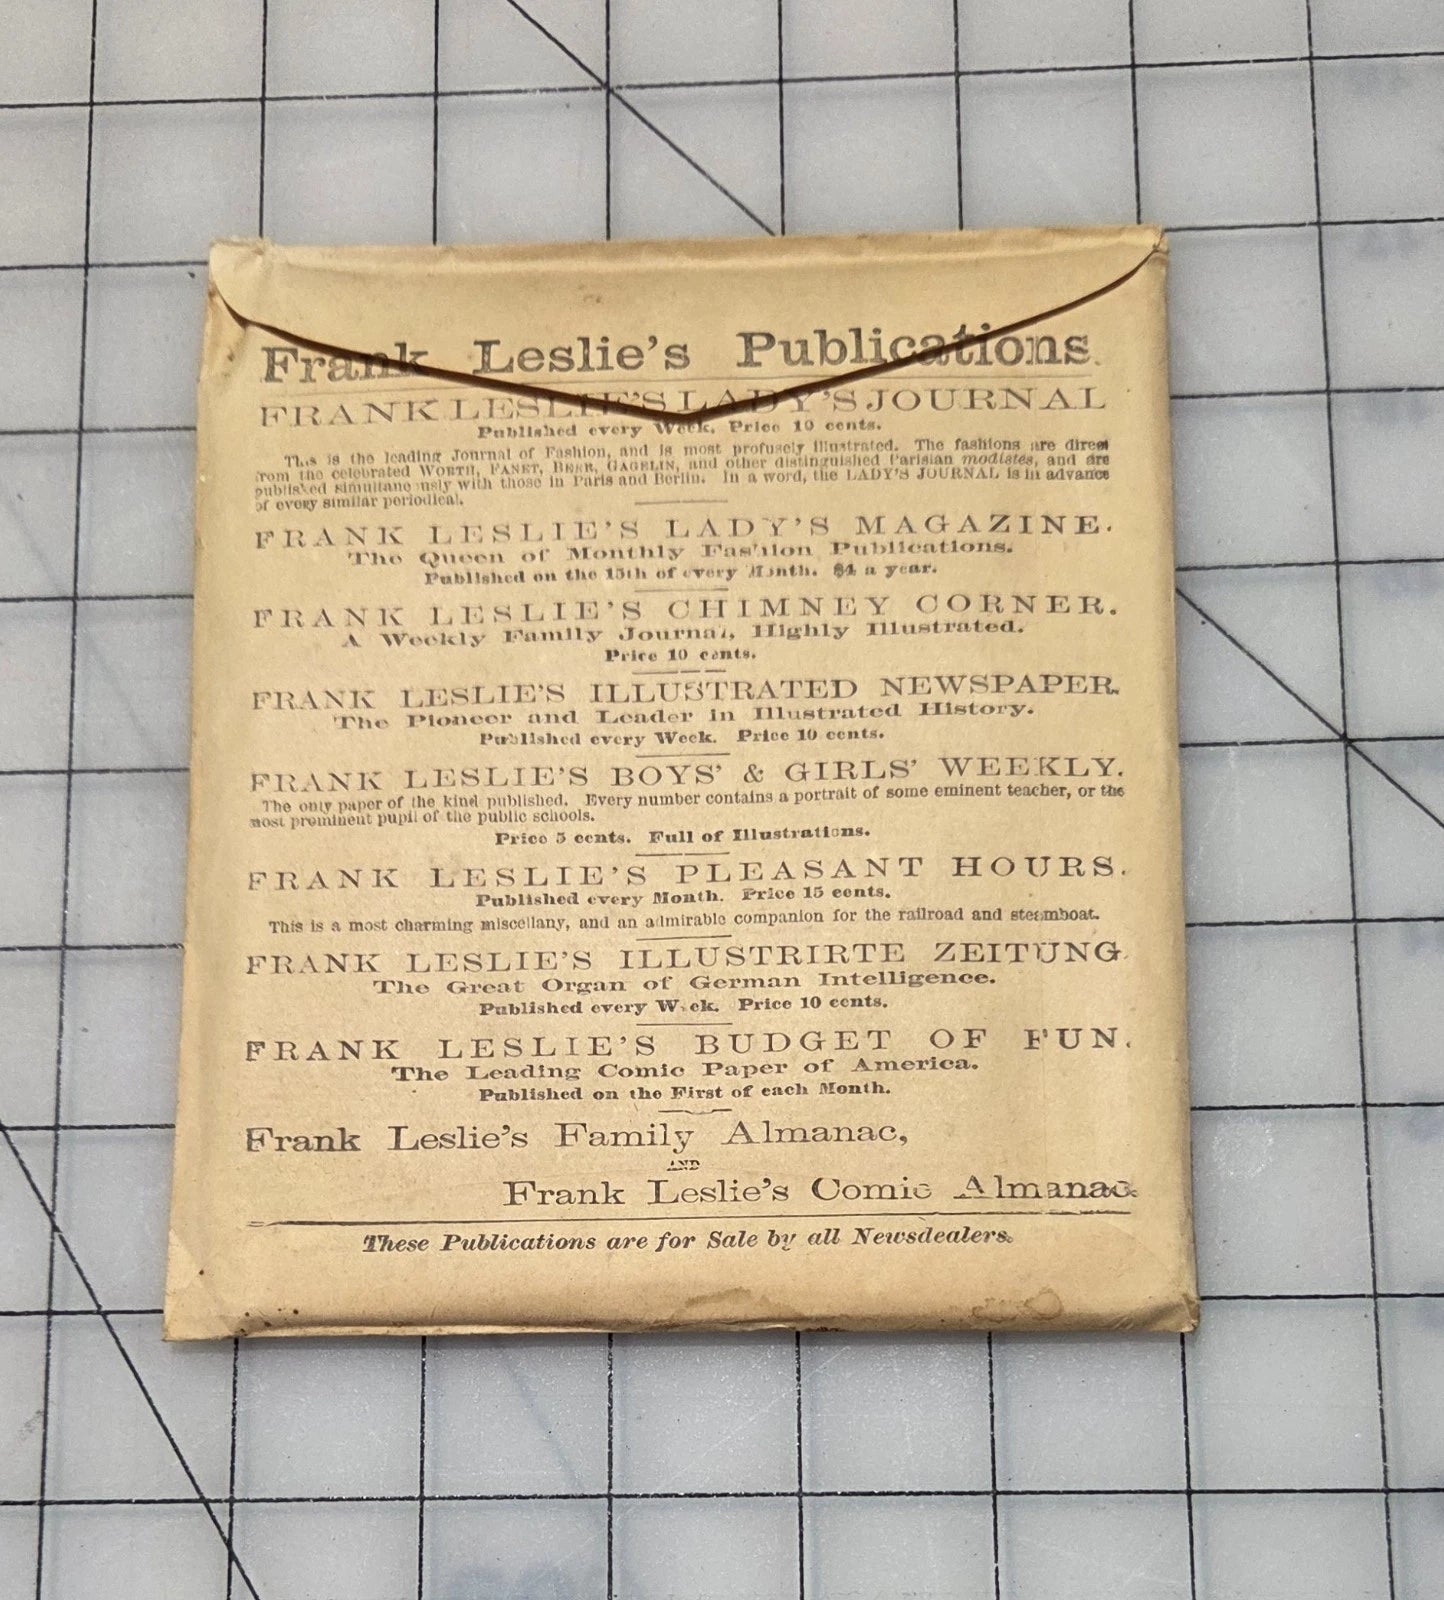 Frank Leslie's Publications.
FRANK LESLIE'S LADY'S JOURNAL
Published every Week. Price 10 cents.
This is the leading Journal of Fashion, and is most profusely illustrated. The fashions are direct
from the celebrated WORTH, FANET, BEER, GAGELIN, and other distinguished Parisian modistes, and are
published simultaneously with those in Paris and Berlin. In a word, the LADY'S JOURNAL is in advance
of every similar periodical.
FRANK LESLIE'S LADY'S MAGAZINE.
The Queen of Monthly Fashion Publications.
Published on the 15th of every Month. $4 a year.
FRANK LESLIE'S CHIMNEY CORNER.
A Weekly Family Journal, Highly Illustrated.
Price 10 cents.
FRANK LESLIE'S ILLUSTRATED NEWSPAPER.
The Pioneer and Leader in Illustrated History.
Published every Week. Price 10 cents.
FRANK LESLIE'S BOYS' & GIRLS' WEEKLY.
The only paper of the kind published. Every number contains a portrait of some eminent teacher, or the
most prominent pupil of the public schools.
Price 5 cents. Full of Illustrations.
FRANK LESLIE'S PLEASANT HOURS.
Published every Month. Price 15 cents.
This is a most charming miscellany, and an admirable companion for the railroad and steamboat.
FRANK LESLIE'S ILLUSTRIRTE ZEITUNG.
The Great Organ of German Intelligence.
Published every Week. Price 10 cents.
FRANK LESLIE'S BUDGET OF FUN.
The Leading Comic Paper of America.
Published on the First of each Month.
Frank Leslie's Family Almanac,
AND
Frank Leslie's Comic Almanac.
These Publications are for Sale by all Newsdealers.